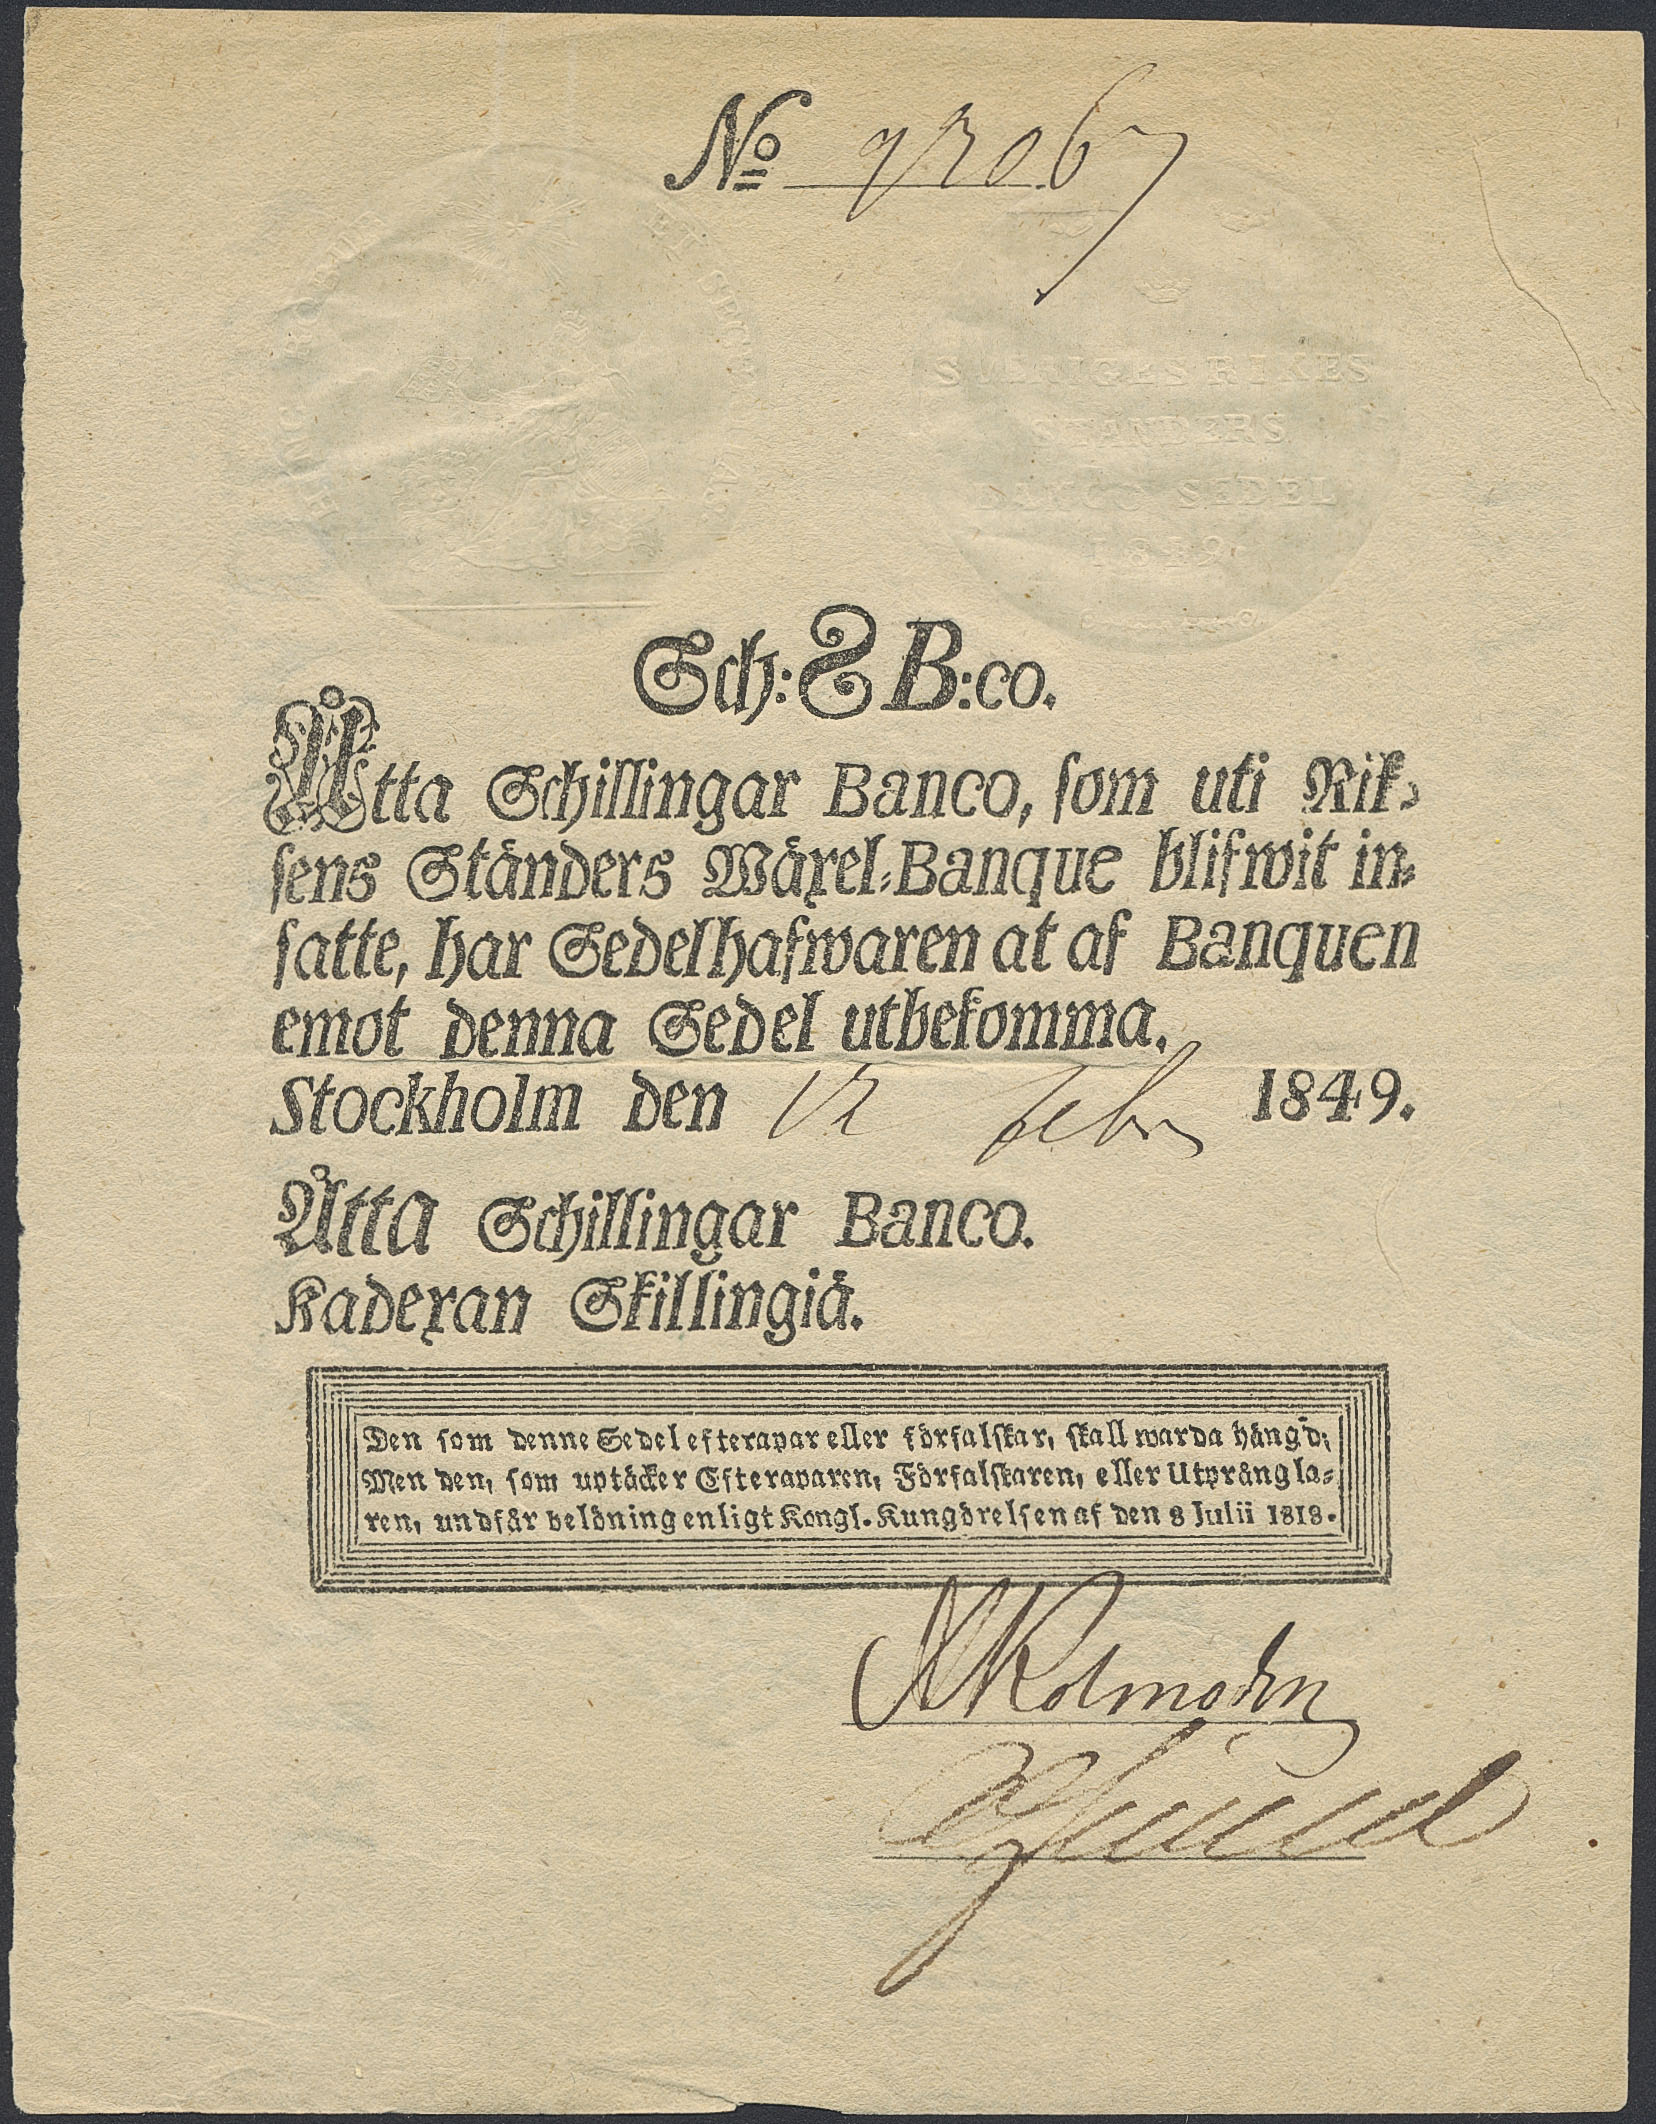 No 92067
HINC ROBUR ET SECURITAS
SVERIGES RIKES
STÄNDERS
BANCO SEDEL
1849.
Sch: 8 B:co.
Åtta Schillingar Banco, som uti Rik-
sens Ständers Wäxel-Banque blifwit in-
satte, har Sedelhafwaren at af Banquen
emot denna Sedel utbekomma.
Stockholm den 12 Febr 1849.
Åtta Schillingar Banco.
Kadexan Skillingiä.
Den som denne Sedel efterapar eller förfalskar, skall warda hängd;
Men den, som uptäcker Efteraparen, Förfalskaren, eller Utprångla-
ren, undfår belöning enligt Kongl. Kungörelsen af den 8 Julii 1818.